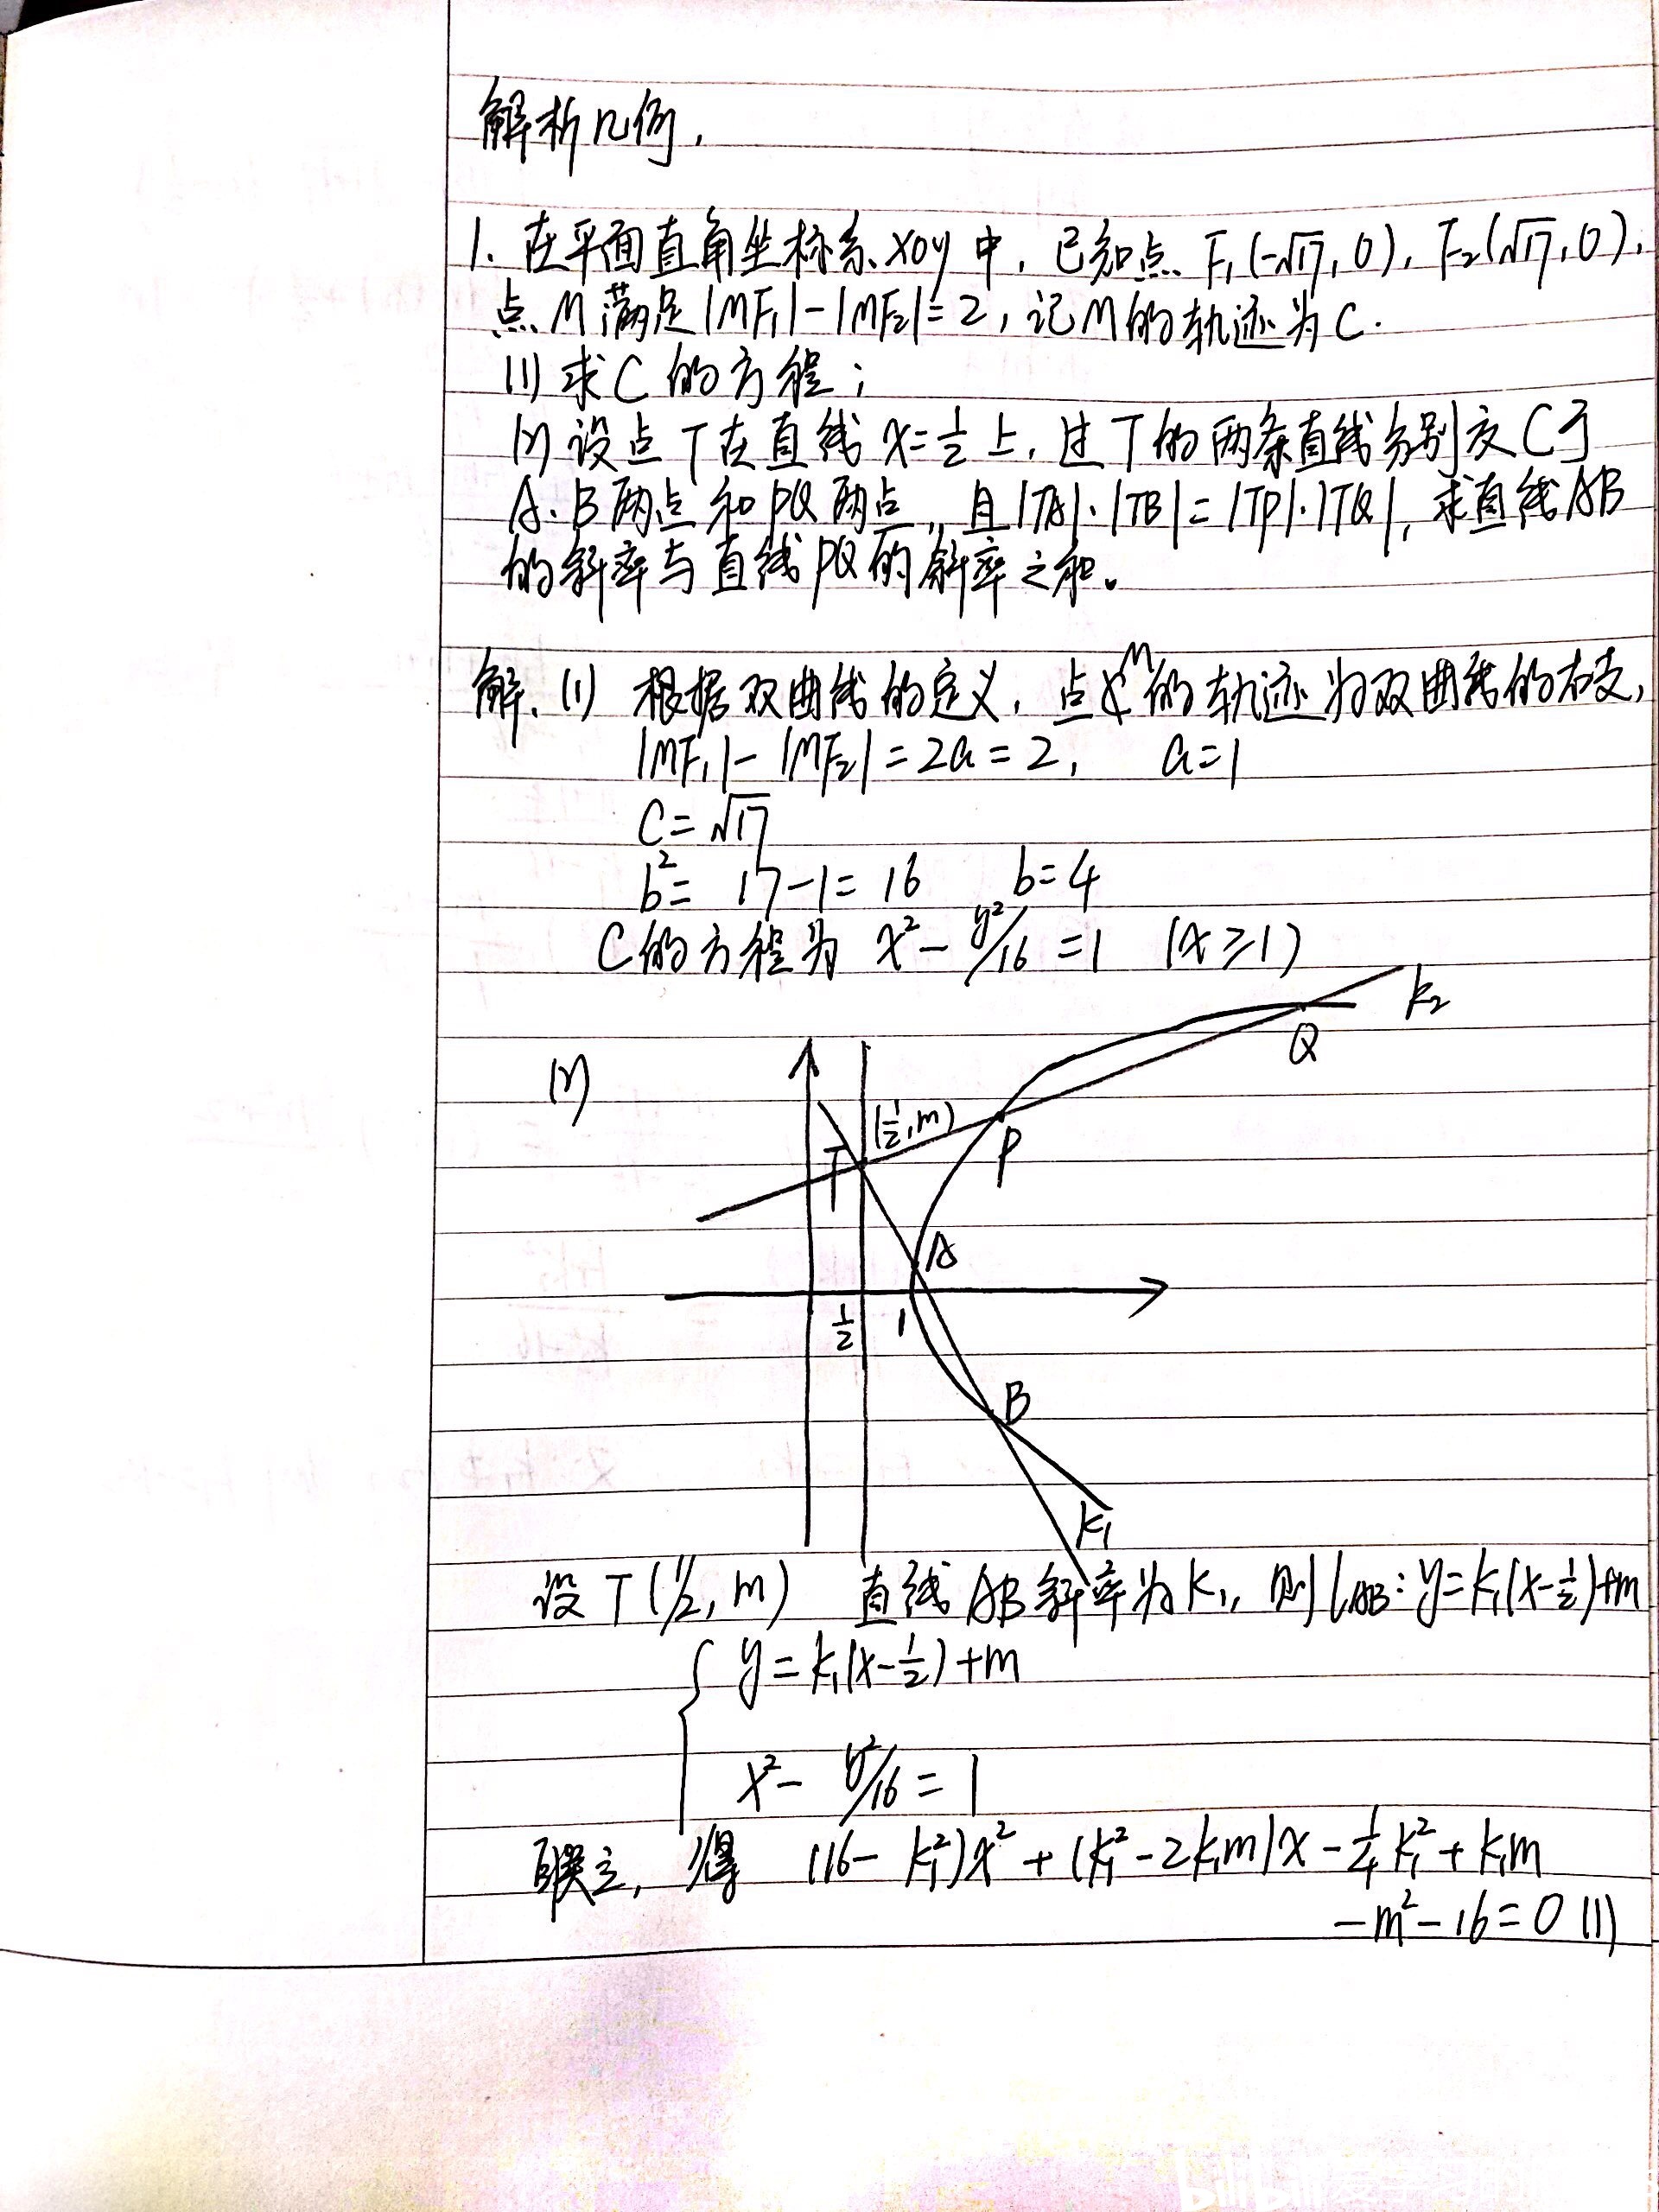 解析几何.
1. 在平面直角坐标系xoy中, 已知点 F₁(-√17, 0), F₂(√17, 0),
点M满足|MF₁|-|MF₂|=2, 记M的轨迹为C.
(1) 求C的方程;
(2) 设点T在直线 x=1/2 上, 过T的两条直线分别交C于
A、B两点和PQ两点, 且|TA|·|TB|=|TP|·|TQ|, 求直线AB
的斜率与直线PQ的斜率之和。
解. (1) 根据双曲线的定义, 点M的轨迹为双曲线的右支,
|MF₁|-|MF₂|=2a=2, a=1
C=√17
b²= 17-1= 16 b=4
C的方程为 x²- y²/16 =1 (x≥1)
(2)
k₂
Q
(1/2, m)
P
T
A
1/2
1
B
k₁
设T(1/2, m) 直线AB斜率为k₁, 则l_AB: y=k₁(x-1/2)+m
{ y=k₁(x-1/2)+m
x²- y²/16 = 1
联立, 得 (16-k₁²)x²+(k₁²-2k₁m)x-1/4k₁²+k₁m
-m²-16=0 (1)
bilibili